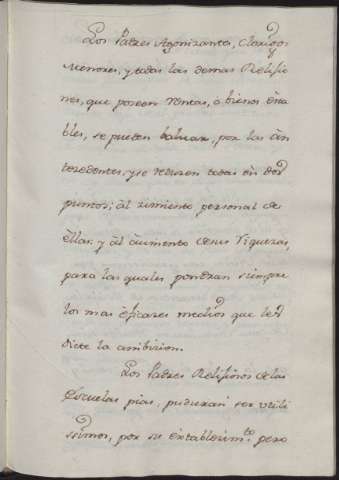 Los Padres Agonizantes, Clerigos
Menores, y todas las demas Religio
nes, que poseen rentas, ó bienes ésta
bles, se pueden baluar, por las án
tecedentes, y se reducen todas én dos
puntos; ál rimiento personal de
éllas, y ál áumento desus riquezas,
para las quales pondran siempre
los mas éficaces medios que les
dicte la ambision.
Los Padres Religiosos delas
Escuelas pias, pudieran ser utili
ssimos, por su extablecim.to pero